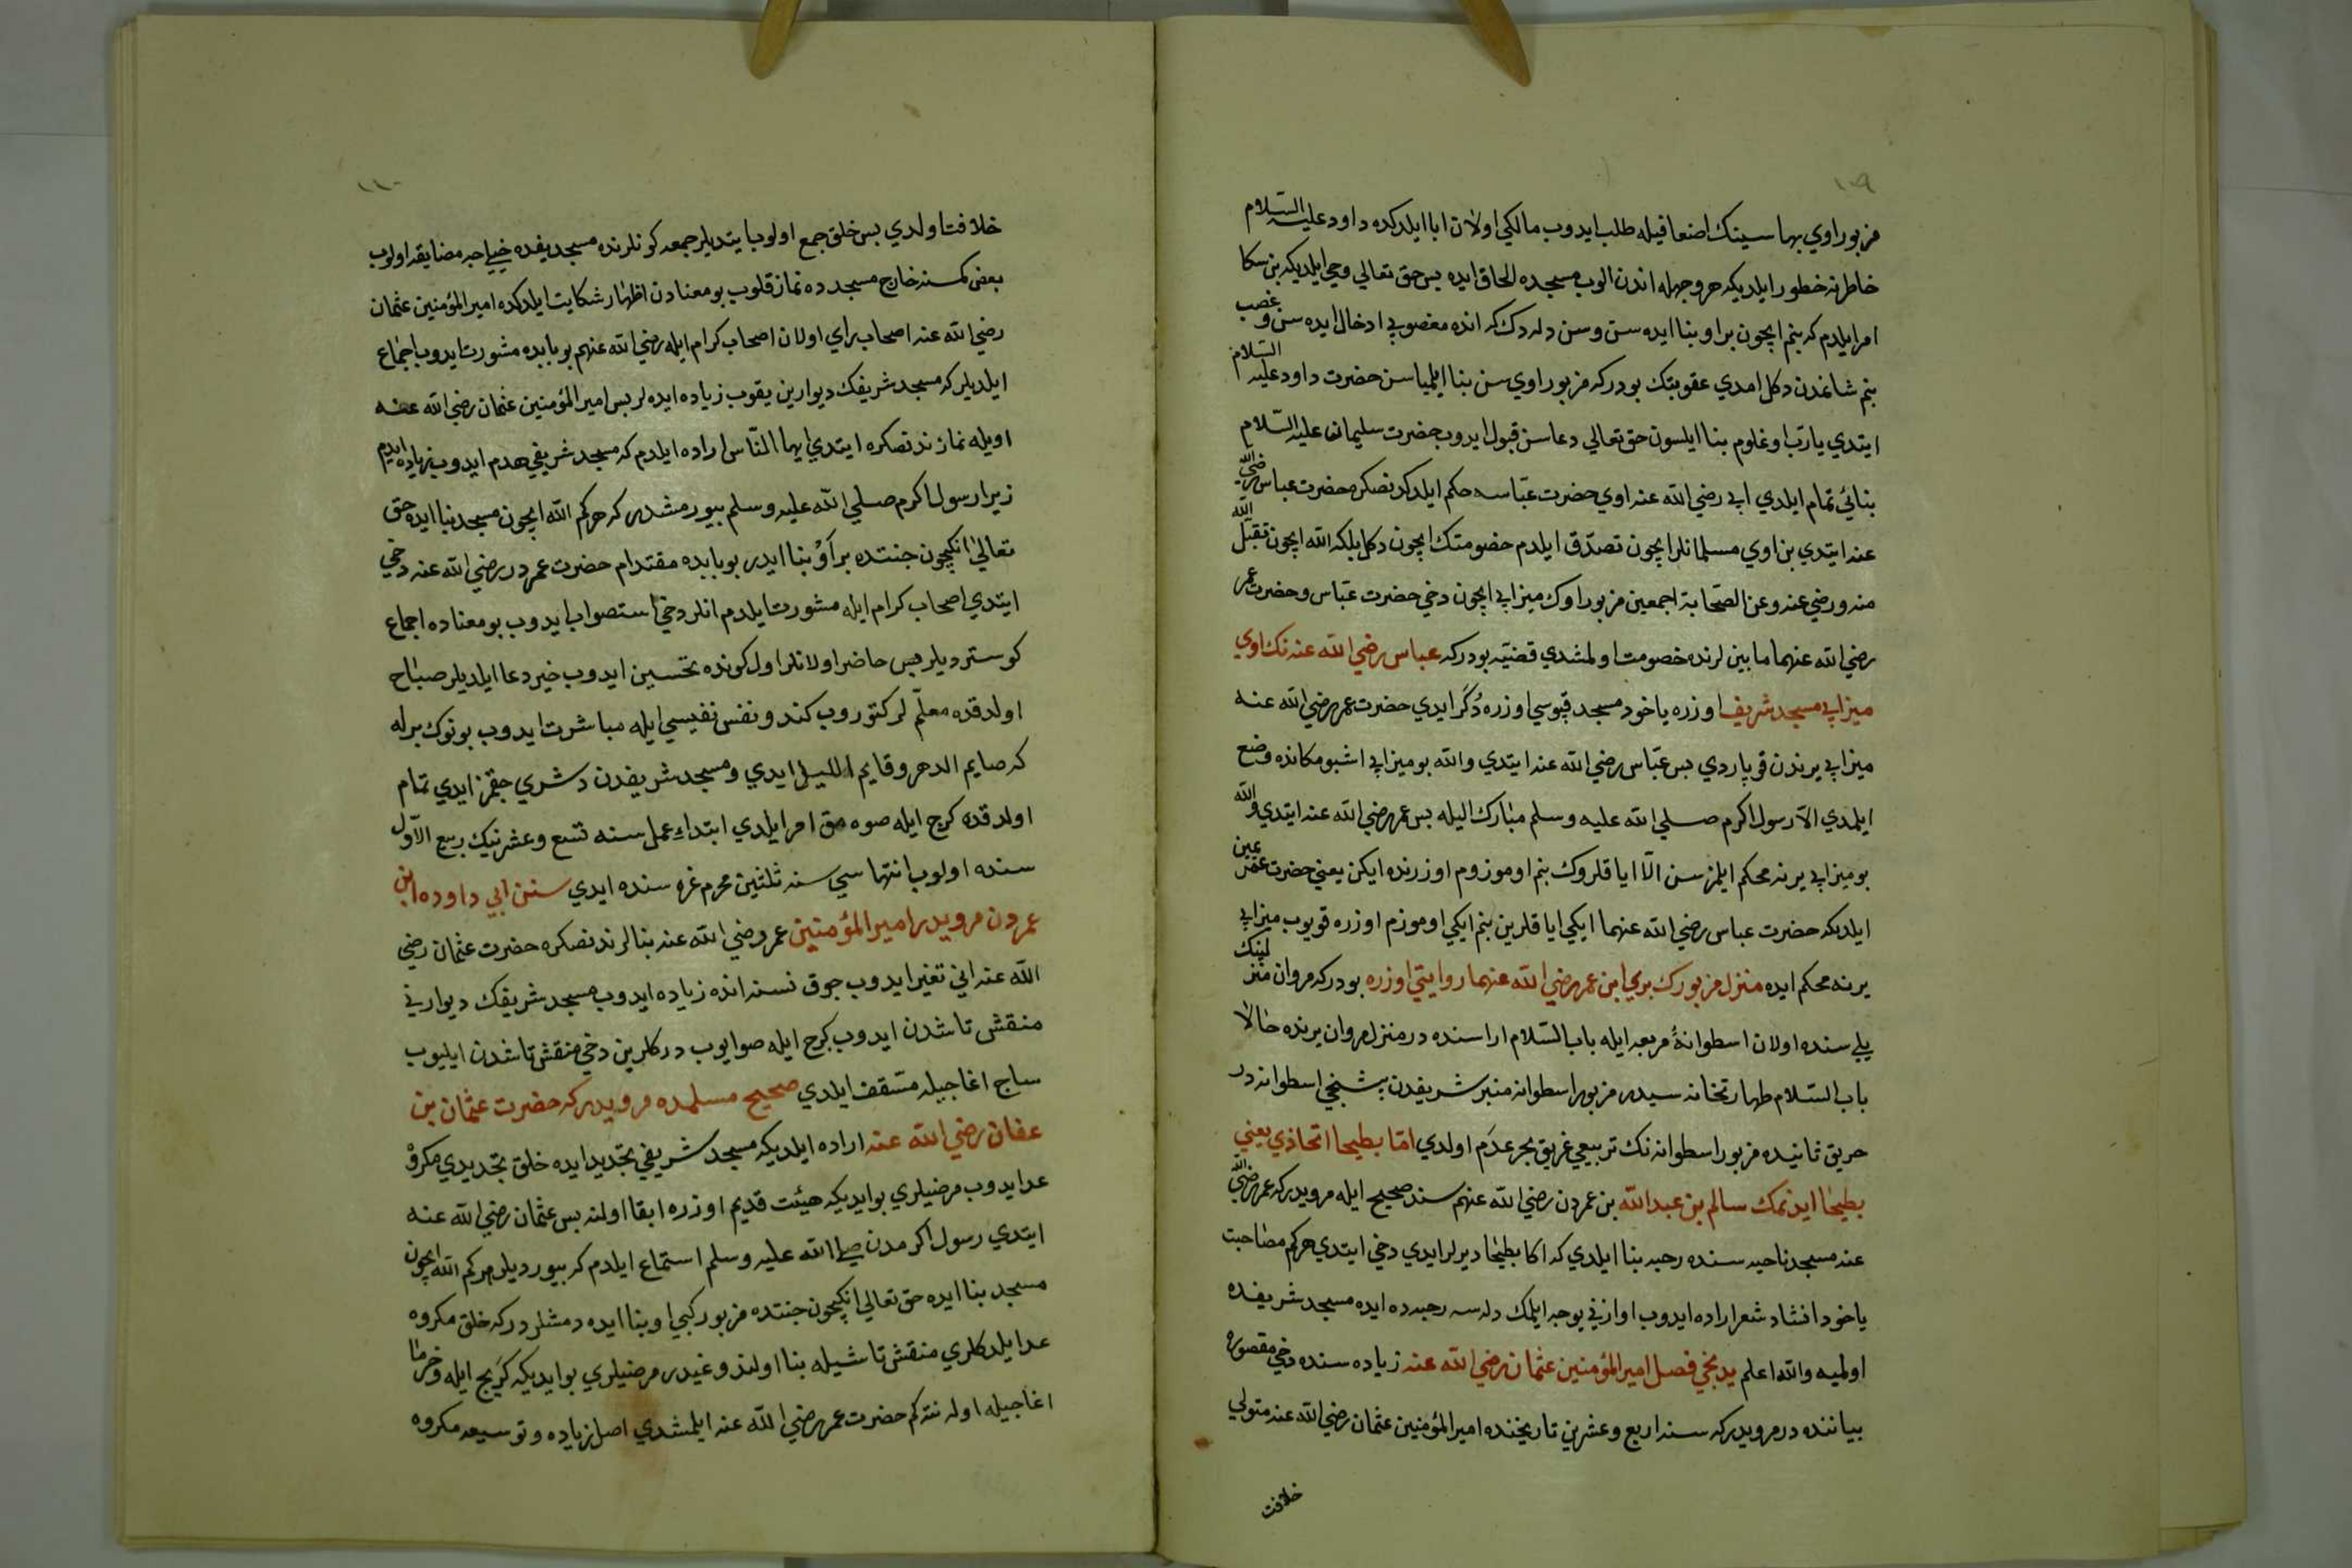 ١٠٩
مزبور اوي بهاسينك اضعافيله طلب ايدوب مالكي اولان ابا ايلدكده داود عليه السلام
خاطرنه خطور ايلديكه هر وجهله اندن الوب مسجده الحاق ايده بس حق تعالي وحي ايلديكه بن سكا
امر ايلدم كه بنم ايچون بر او بنا ايده سن و سن دلردك كه انده مغصوبي ادخال ايده سن و غصب
بنم شانمدن دكل امدي عقوبتك بودركه مزبور اوي سن بنا ايلمياسن حضرت داود عليه السلام
ايتدي يا رب اوغلوم بنا ايلسون حق تعالي دعاسن قبول ايدوب حضرت سليمان عليه السلام
بنائي تمام ايلدي ابي رضي الله عنه اوي حضرت عباسه حكم ايلدكدنصكره حضرت عباس رضي الله
عنه ايتدي بن اوي مسلمانلر ايچون تصدق ايلدم خصومتك ايچون دكل بلكه الله ايچون تقبل الله
منه و رضي عنه وعن الصحابة اجمعين مزبور اوك ميزابي ايچون دخي حضرت عباس و حضرت عمر
رضي الله عنهما مابين لرنده خصومت اولمشدي قضيه بودركه عباس رضي الله عنه نك اوي
ميزابي مسجد شريف اوزره ياخود مسجد قپوسي اوزره دكر ايدي حضرت عمر رضي الله عنه
ميزابي يرندن قوپاردي بس عباس رضي الله عنه ايتدي والله بو ميزابي اشبو مكانده وضع
ايلمدي الا رسول اكرم صلي الله عليه وسلم مبارك اليله بس عمر رضي الله عنه ايتدي والله
بو ميزابي يرنه محكم ايلمز سن الا اياقلروك بنم اوموزوم اوزرنده ايكن يعني حضرت عمر يمين
ايلديكه حضرت عباس رضي الله عنهما ايكي اياقلرين بنم ايكي اوموزم اوزره قويوب ميزابي
يرنه محكم ايده منزل مزبورك بري ابن عمر رضي الله عنهما روايتي اوزره بودركه مروان منزلينك
يلي سنده اولان اسطوانۀ مربعه ايله باب السلام اراسنده در منزل مروان يرنده حالا
باب السلام طهارتخانه سيدر مزبور اسطوانه منبر شريفدن بشنجي اسطوانه در
حريق ثانيده مزبور اسطوانه نك تربيعي غريق بحر عدم اولدي اما بطيحا اتخاذي يعني
بطيحا ايدنمك سالم بن عبد الله بن عمردن رضي الله عنهم سند صحيح ايله مرويدركه عمر رضي الله
عنه مسجد ناحيه سنده رحبه بنا ايلدي كه اكا بطيحا ديرلر ايدي دخي ايتدي هركم مصاحبت
ياخود انشاد شعر اراده ايدوب اوازني يوجه ايلمك دلرسه رحبه ده ايده مسجد شريفده
اولميه والله اعلم يدنجي فصل امير المؤمنين عثمان رضي الله عنه زياده سنده دخي مقصوره
بياننده در مرويدركه سنه اربع وعشرين تاريخنده امير المؤمنين عثمان رضي الله عنه متولي
خلافت
١١٠
خلافت اولدي بس خلق جمع اولوب ايتديلر جمعه كونلرنده مسجد يفده خيلجه مضايقه اولوب
بعض كمسنه خارج مسجدده نماز قلوب بو معنادن اظهار شكايت ايلدكده امير المؤمنين عثمان
رضي الله عنه اصحاب راي اولان اصحاب كرام ايله رضي الله عنهم بو بابده مشورت ايدوب اجماع
ايلديلركه مسجد شريفك ديوارين يقوب زياده ايده لر بس امير المؤمنين عثمان رضي الله عنه
اويله نمازندنصكره ايتدي ايها الناس اراده ايلدم كه مسجد شريفي هدم ايدوب زياده ايدم
زيرا رسول اكرم صلي الله عليه وسلم بيورمشدر كه هركم الله ايچون مسجد بنا ايده حق
تعالي انكيچون جنتده بر او بنا ايدر بو بابده مقتدام حضرت عمردر رضي الله عنه دخي
ايتدي اصحاب كرام ايله مشورت ايلدم انلر دخي استصواب ايدوب بو معناده اجماع
كوسترديلر بس حاضر اولانلر اول كونده تحسين ايدوب خير دعا ايلديلر صباح
اولدقده معلم لر كتوروب كندو نفس نفيسي ايله مباشرت ايدوب بونوك برله
كه صايم الدهر وقايم الليل ايدي و مسجد شريفدن دشري چقمز ايدي تمام
اولدقده كرج ايله صوه مق امر ايلدي ابتداء عمل سنه تسع وعشرنيك ربيع الاول
سنده اولوب انتهاسي سنه ثلثين محرم غره سنده ايدي سنن ابي داوده ابن
عمردن مرويدر امير المؤمنين عمر رضي الله عنه بنالرندنصكره حضرت عثمان رضي
الله عنه اني تغير ايدوب چوق نسنه انده زياده ايدوب مسجد شريفك ديواريني
منقش تاشدن ايدوب كرج ايله صوايوب دركلرين دخي منقش تاشدن ايليوب
ساج اغاجيله مسقف ايلدي صحيح مسلمده مرويدركه حضرت عثمان بن
عفان رضي الله عنه اراده ايلديكه مسجد شريفي تجديد ايده خلق تجديدي مكروه
عد ايدوب مرضيلري بو ايديكه هيئت قديم اوزره ابقا اولنه بس عثمان رضي الله عنه
ايتدي رسول اكرمدن صلي الله عليه وسلم استماع ايلدم كه بيورديلر هركم الله ايچون
مسجد بنا ايده حق تعالي انكيچون جنتده مزبور كبي او بنا ايده دمشلردركه خلق مكروه
عد ايلدكلري منقش تاشيله بنا اولندوغيدر مرضيلري بو ايديكه كرپج ايله و خرما
اغاجيله اوله نته كم حضرت عمر رضي الله عنه ايلمشدي اصل زياده و توسيعه مكروه